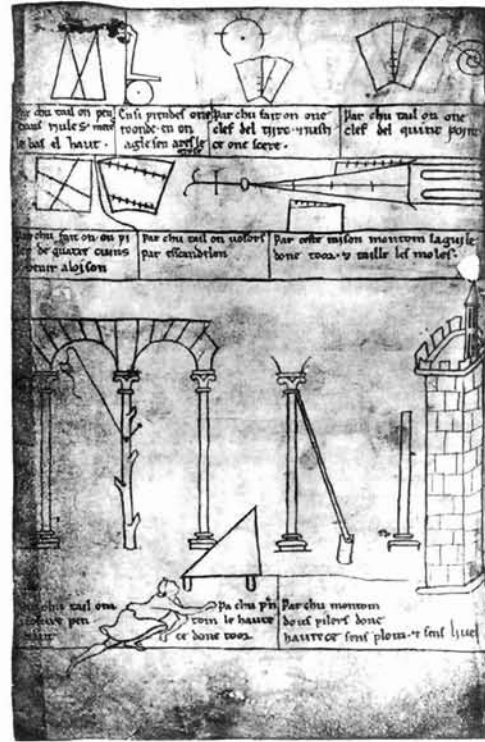 chu tail on pen
le bas el haut .
Ensi prendes one
roonde . en on
agle . sen ares le
Par chu fait on one
clef del
ce one scere .
Par chu tail on one
clef del quint point
chu fait on on pi
ler de quatre cuins
venir a loison
Par chu tail on vosors
par escandelon
Par ceste raison montom laguile
done toor . & taille les moles .
chu tail om
vosure pen
Pa chu p'n
tom le haute
ce done toor
Par chu montom
dous pilers done
hautece sens plom . & sens livel